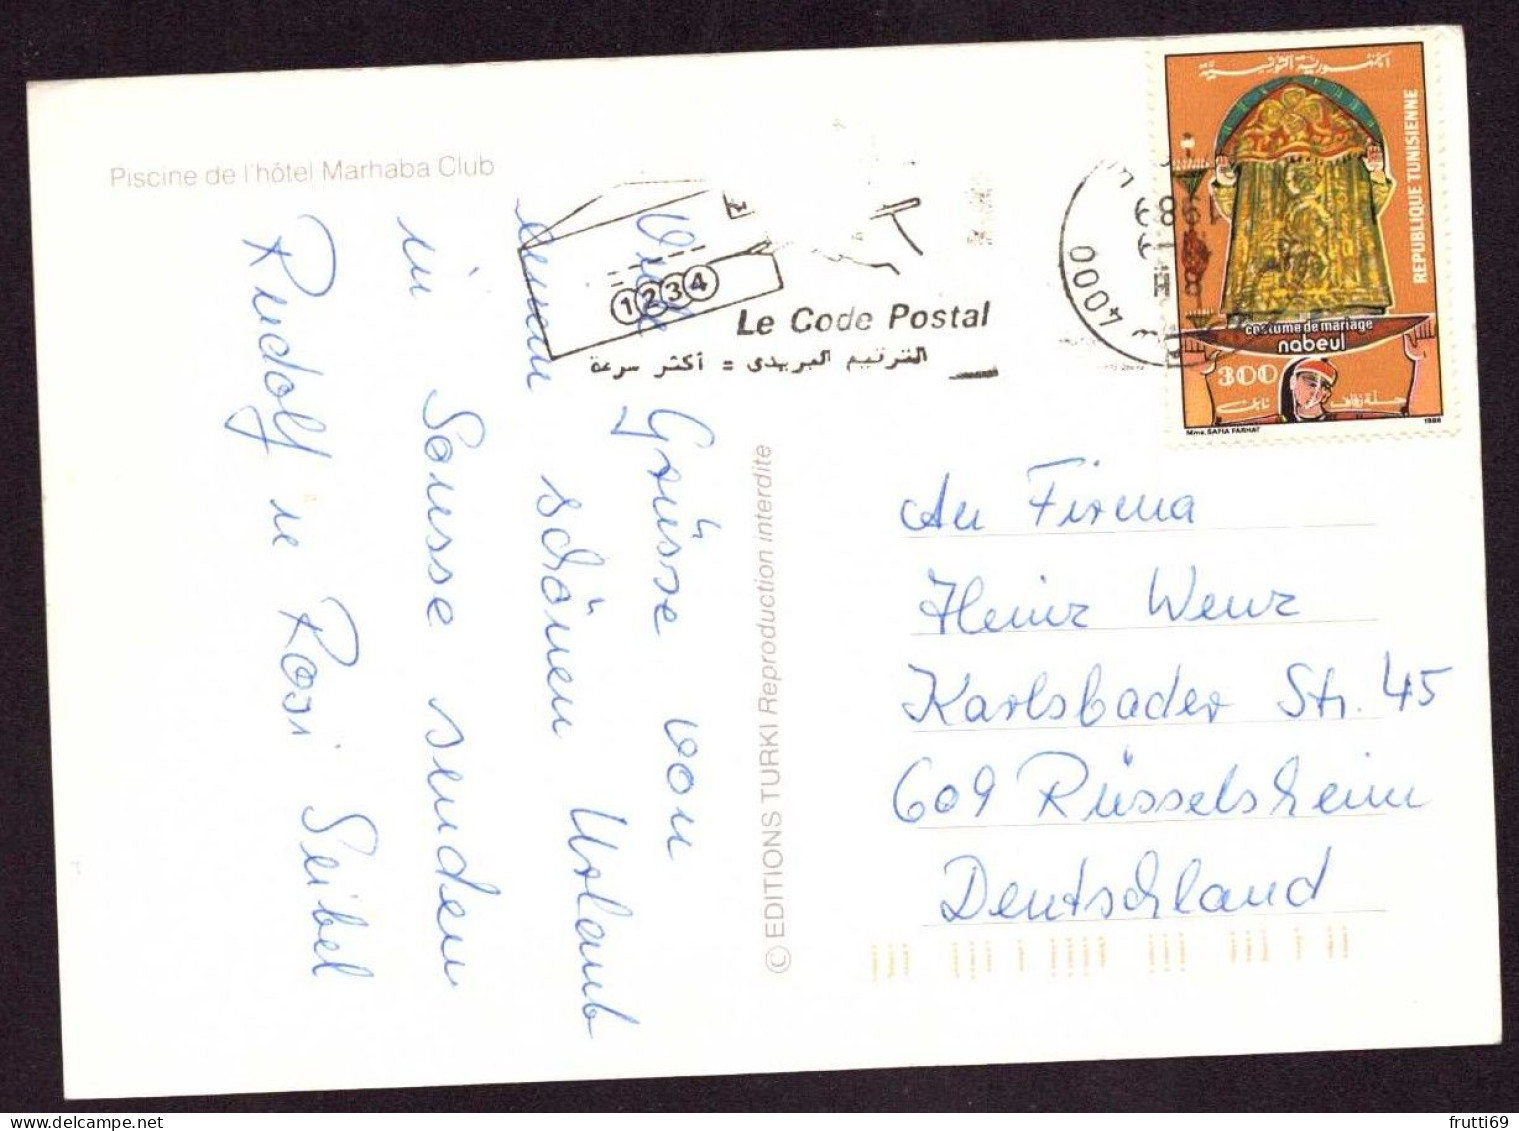 Piscine de l'hôtel Marhaba Club
Viele Grüsse von
einem schönen Urlaub
in Sousse senden
Rudolf u Rosi Seibel
© EDITIONS TURKI Reproduction interdite
1234
Le Code Postal
الترقيم البريدى = أكثر سرعة
4000
1989
الجمهورية التونسية
REPUBLIQUE TUNISIENNE
costume de mariage
nabeul
300
حلة زفاف نابل
Mme. SAFIA FARHAT
1988
An Firma
Heinz Wenz
Karlsbader Str. 45
609 Rüsselsheim
Deutschland
frutti69